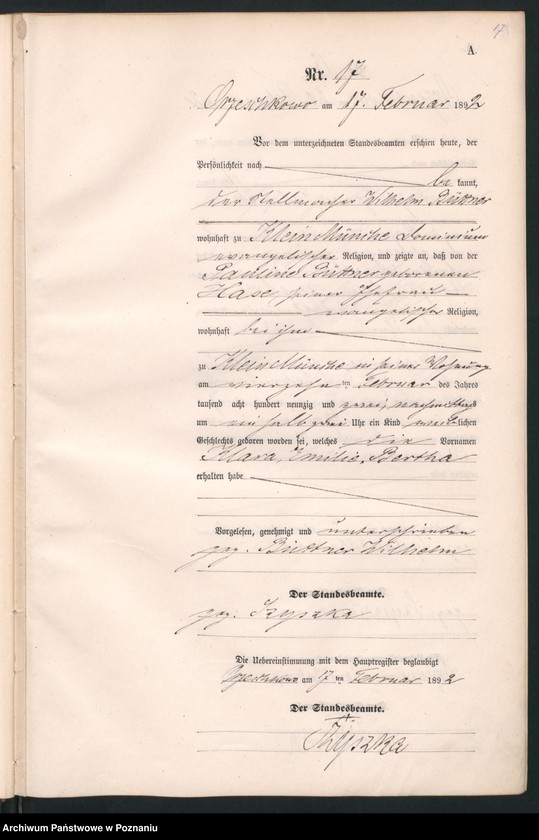 A.
Nr. 17
Orzeschkowo am 17. Februar 1892
Vor dem unterzeichneten Standesbeamten erschien heute, der
Persönlichkeit nach
be kannt,
der Stellmacher Wilhelm Büttner
wohnhaft zu Klein Münche Dominium
evangelischer Religion, und zeigte an, daß von der
Pauline Büttner geborenen
Hase, seiner Ehefrau
evangelischer Religion,
wohnhaft bei ihm
zu Klein Münche in seiner Wohnung
am vierzehn ten Februar des Jahres
tausend acht hundert neunzig und zwei, nachmittags
um ein halb zwei Uhr ein Kind weiblichen
Geschlechts geboren worden sei, welches die Vornamen
Klara, Emilie, Bertha
erhalten habe
Vorgelesen, genehmigt und unterschrieben
gez. Büttner Wilhelm
Der Standesbeamte.
gez. Zyszka
Die Uebereinstimmung mit dem Hauptregister beglaubigt
Orzeschkowo am 17 ten Februar 1892
Der Standesbeamte.
Zyszka
Archiwum Państwowe w Poznaniu